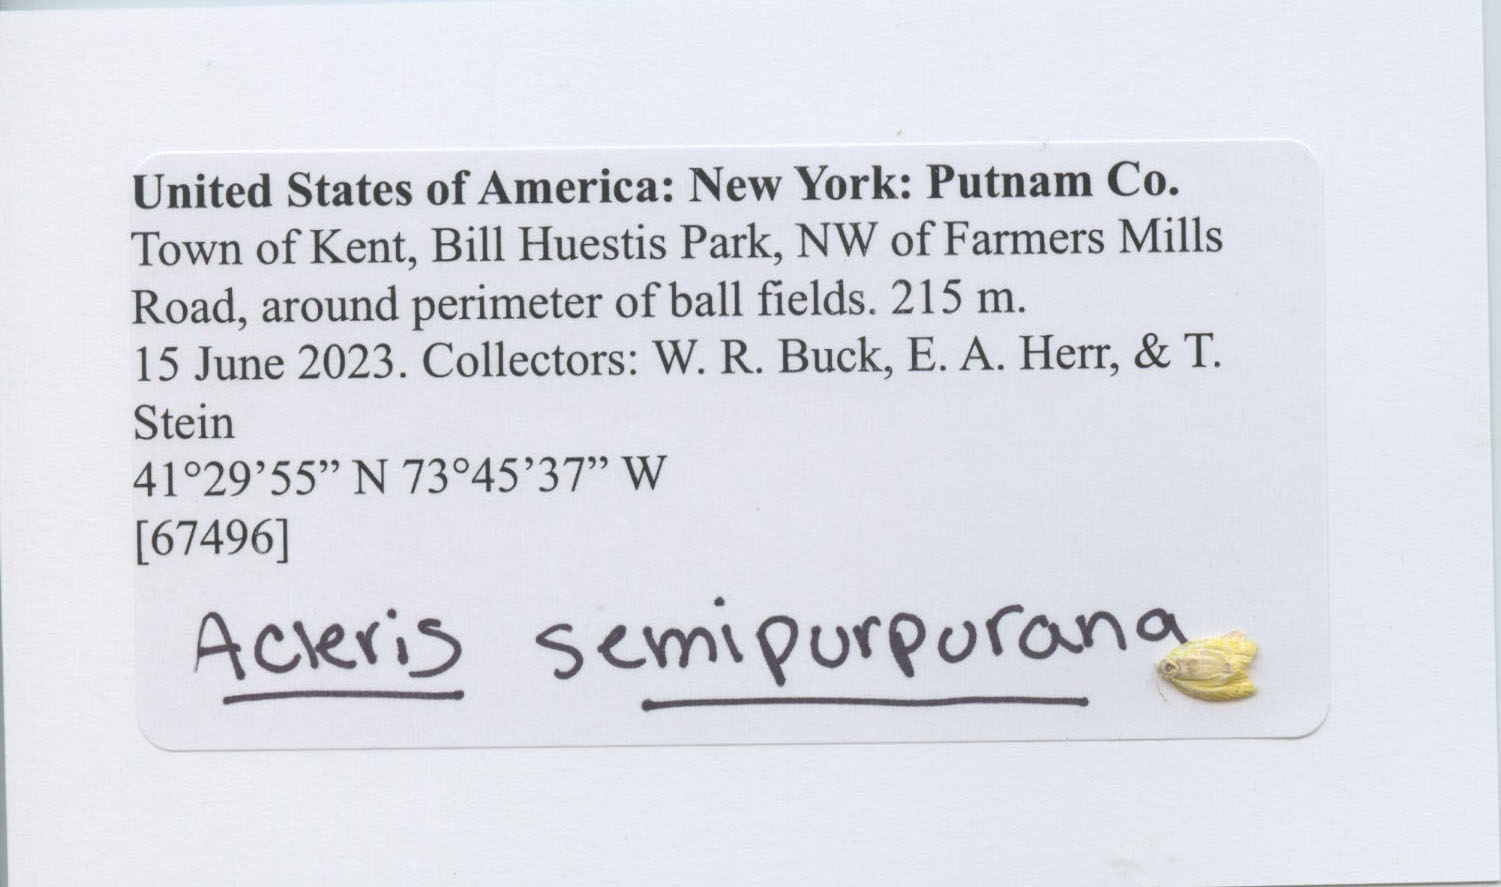 United States of America: New York: Putnam Co.
Town of Kent, Bill Huestis Park, NW of Farmers Mills
Road, around perimeter of ball fields. 215 m.
15 June 2023. Collectors: W. R. Buck, E. A. Herr, & T.
Stein
41°29’55” N 73°45’37” W
[67496]
Acleris semipurpurana